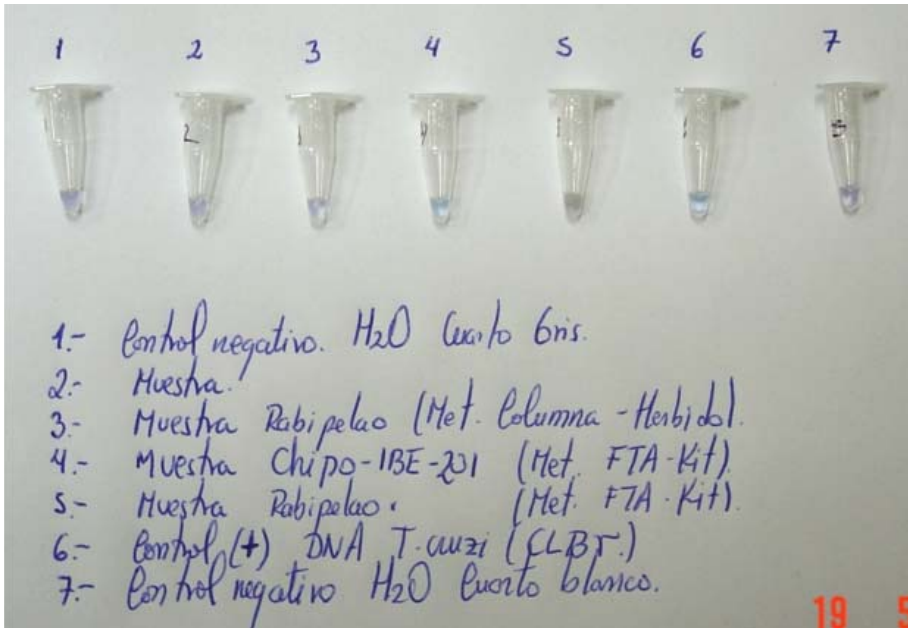 1 2 3 4 5 6 7
2
1.- Control negativo. H2O Cuarto Gris.
2.- Muestra.
3.- Muestra Rabipelao (Met. Columna - Herbidol).
4.- Muestra Chipo-IBE-201 (Met. FTA-Kit).
5.- Muestra Rabipelao. (Met. FTA-Kit).
6.- Control (+) DNA T. cruzi (CLBr.)
7.- Control negativo H2O Cuarto blanco.
19 5